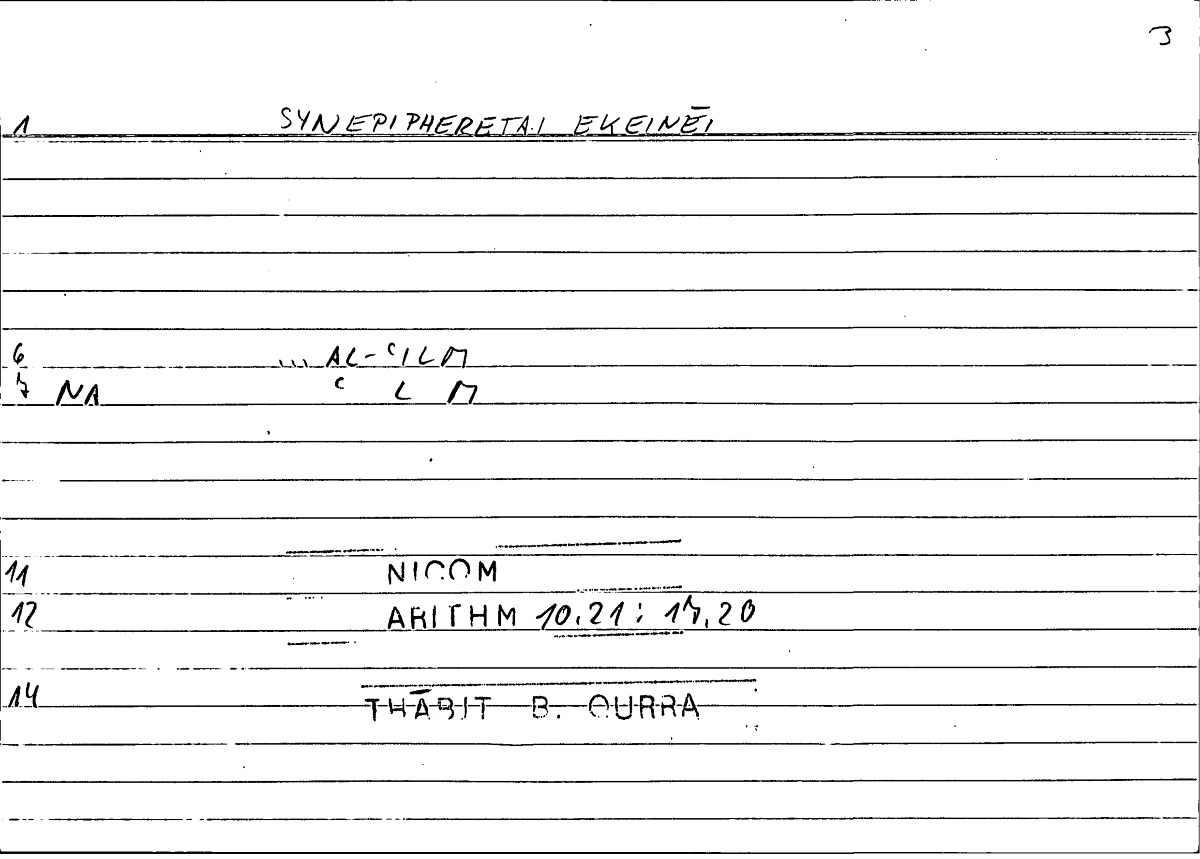 3
1 SYNEPIPHERETAI EKEINĒI
6 ... AL-ʿILM
7 NA ʿ L M
11 NICOM
12 ARITHM 10.21 : 17.20
14 THĀBIT B. QURRA